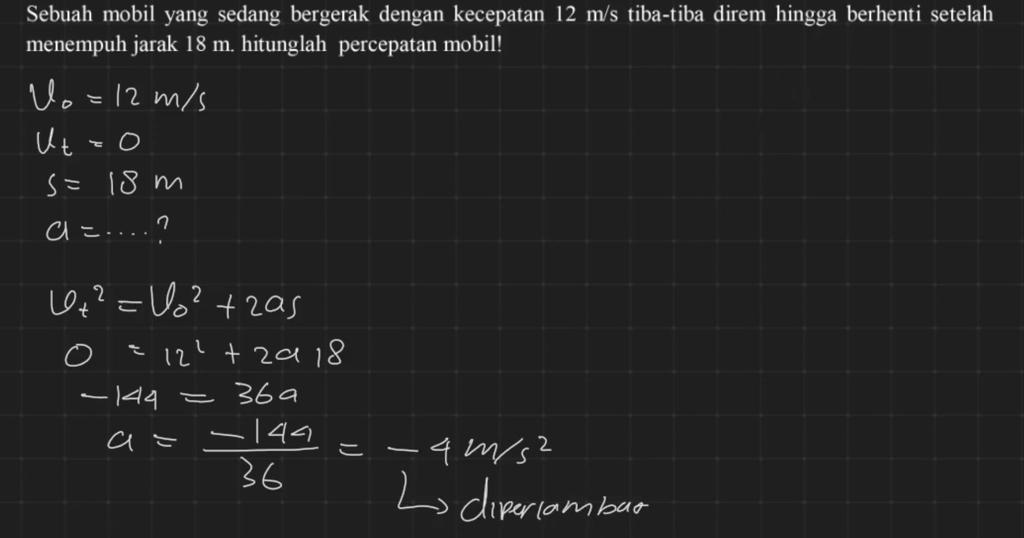 Sebuah mobil yang sedang bergerak dengan kecepatan 12 m/s tiba-tiba direm hingga berhenti setelah
menempuh jarak 18 m. hitunglah percepatan mobil!
V₀ = 12 m/s
Vt = 0
s = 18 m
a = ....?
Vt² = V₀² + 2as
0 = 12² + 2a 18
-144 = 36a
a = -144/36 = -4 m/s²
↳ diperlambat